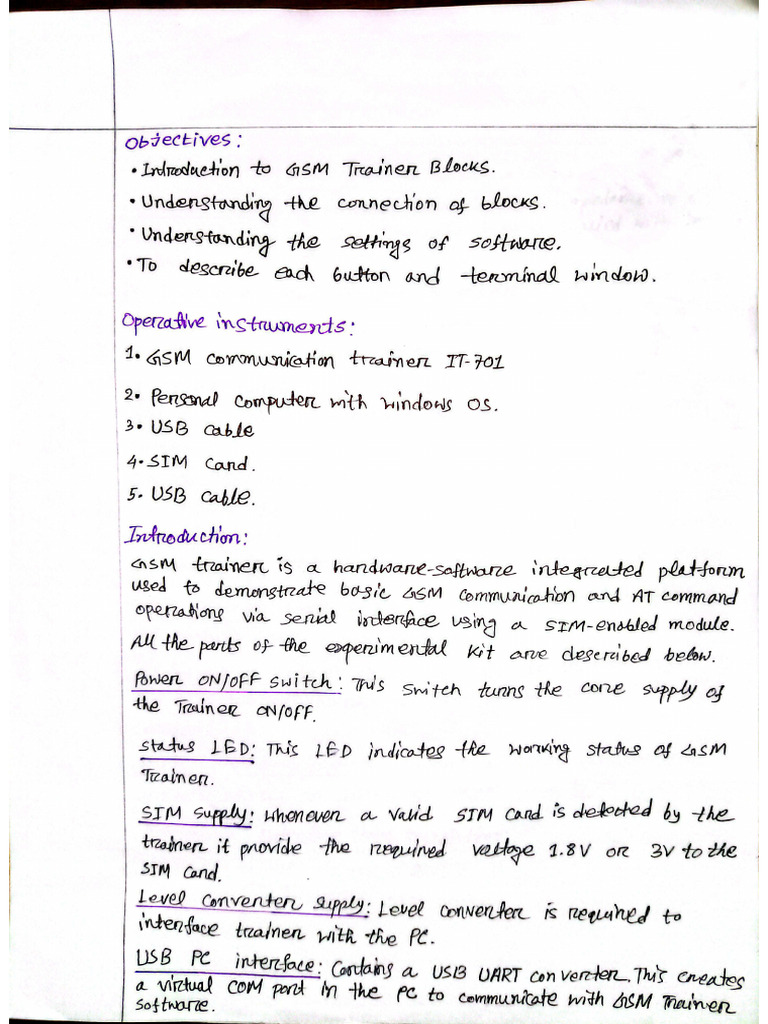 Objectives:
• Introduction to GSM Trainer Blocks.
• Understanding the connection of blocks.
• Understanding the settings of software.
• To describe each button and terminal window.
Operative instruments:
1. GSM communication trainer IT-701
2. Personal computer with windows OS.
3. USB cable
4. SIM card.
5. USB cable.
Introduction:
GSM trainer is a hardware-software integrated platform
used to demonstrate basic GSM communication and AT command
operations via serial interface using a SIM-enabled module.
All the parts of the experimental kit are described below.
Power ON/OFF switch: This switch turns the core supply of
the Trainer ON/OFF.
Status LED: This LED indicates the working status of GSM
Trainer.
SIM supply: Whenever a valid SIM card is detected by the
trainer it provide the required voltage 1.8V or 3V to the
SIM card.
Level converter supply: Level converter is required to
interface trainer with the PC.
USB PC interface: Contains a USB UART converter. This creates
a virtual COM port in the PC to communicate with GSM Trainer
software.